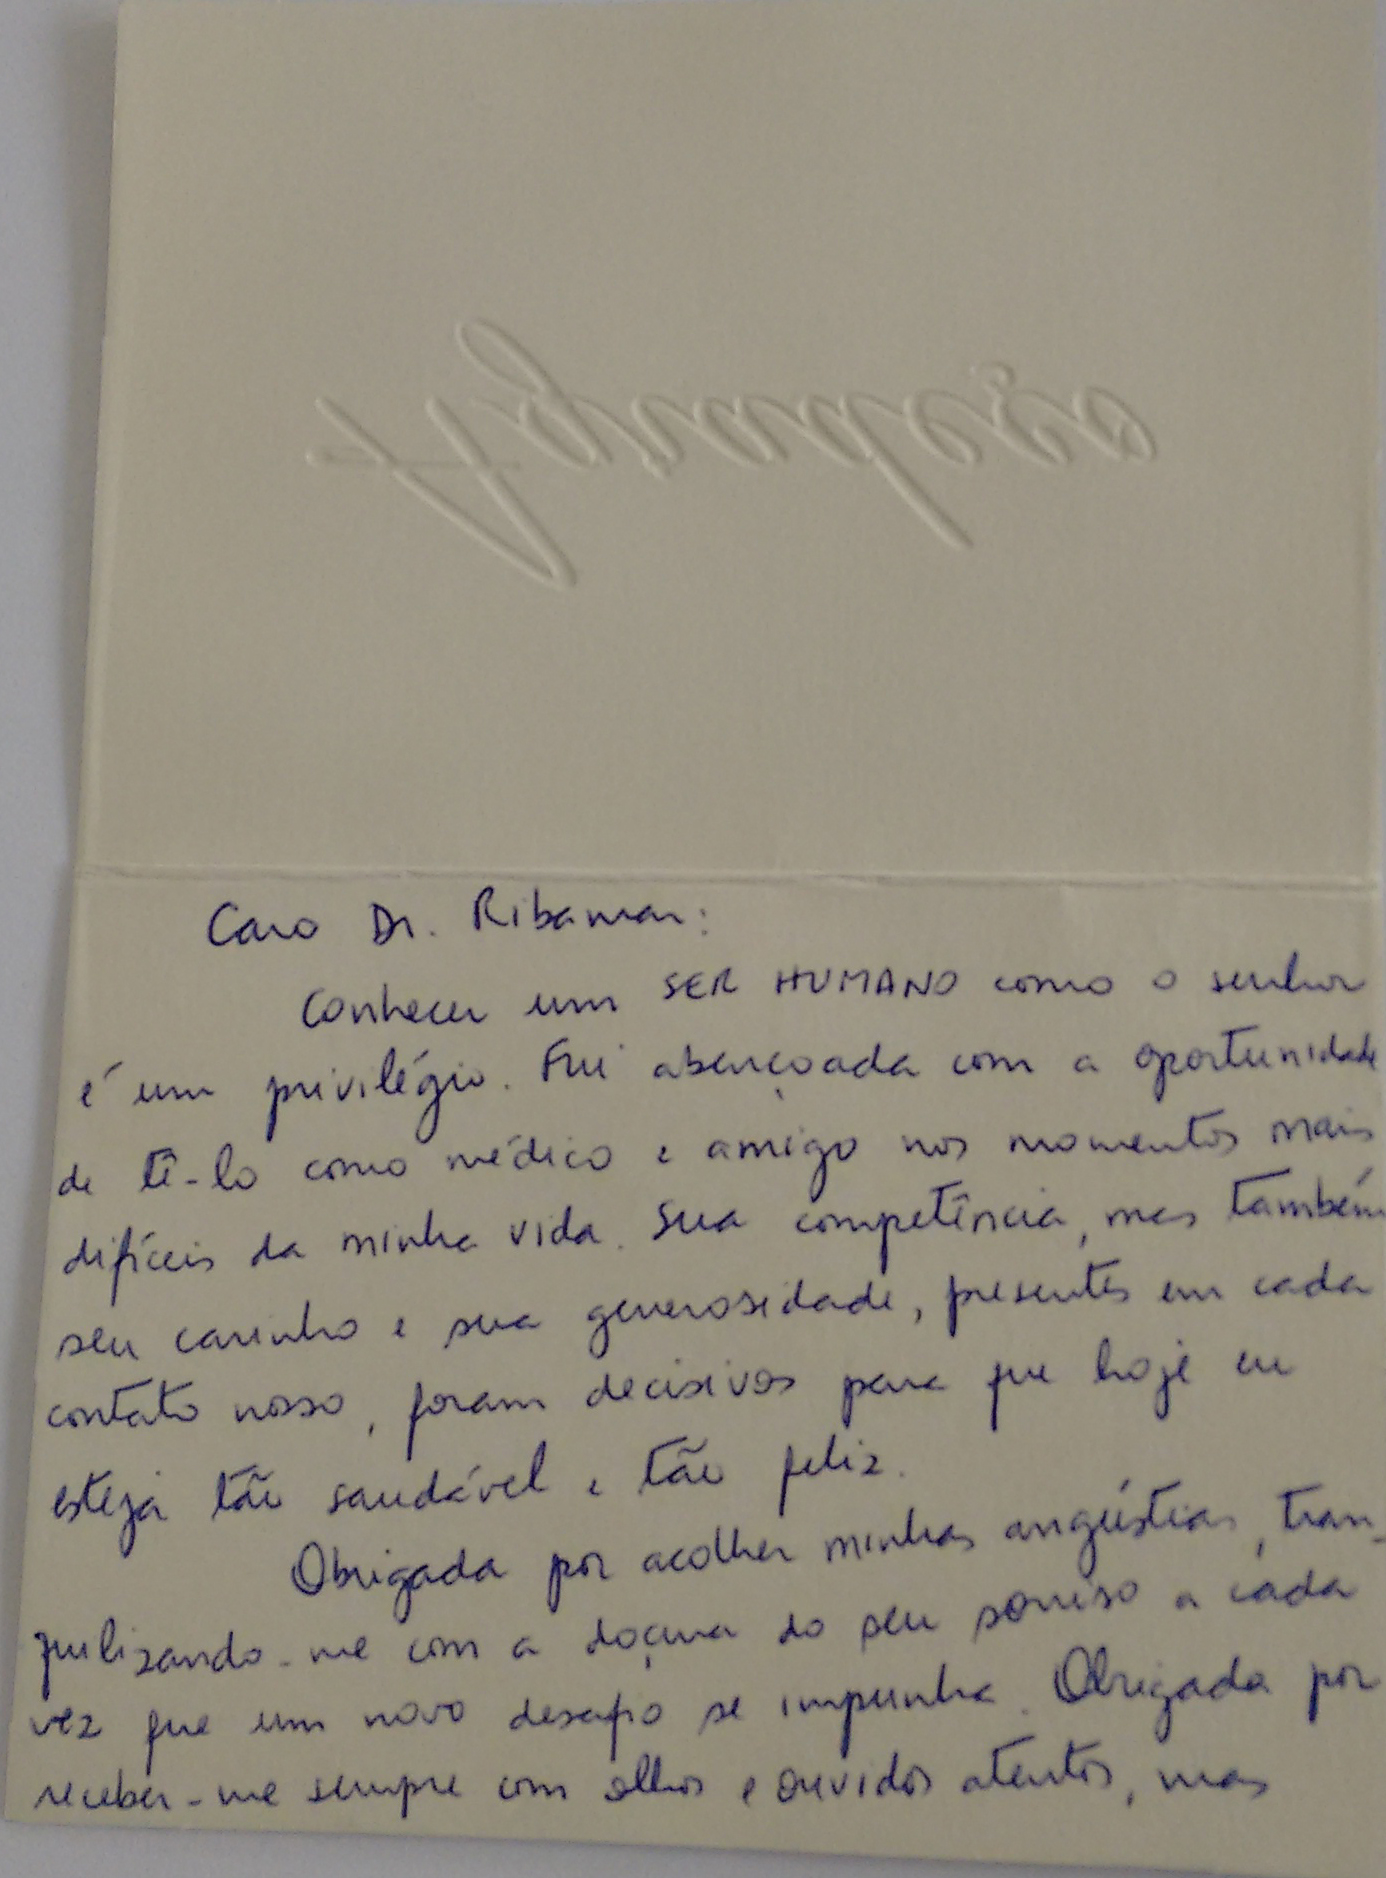 Agradeço
Caro Dr. Ribamar:
Conhecer um SER HUMANO como o senhor
é um privilégio. Fui abençoada com a oportunidade
de tê-lo como médico e amigo nos momentos mais
difíceis da minha vida. Sua competência, mas também
seu carinho e sua generosidade, presentes em cada
contato nosso, foram decisivos para que hoje eu
esteja tão saudável e tão feliz.
Obrigada por acolher minhas angústias, tran-
quilizando-me com a doçura do seu sorriso a cada
vez que um novo desafio se impunha. Obrigada por
receber-me sempre com olhos e ouvidos atentos, mas